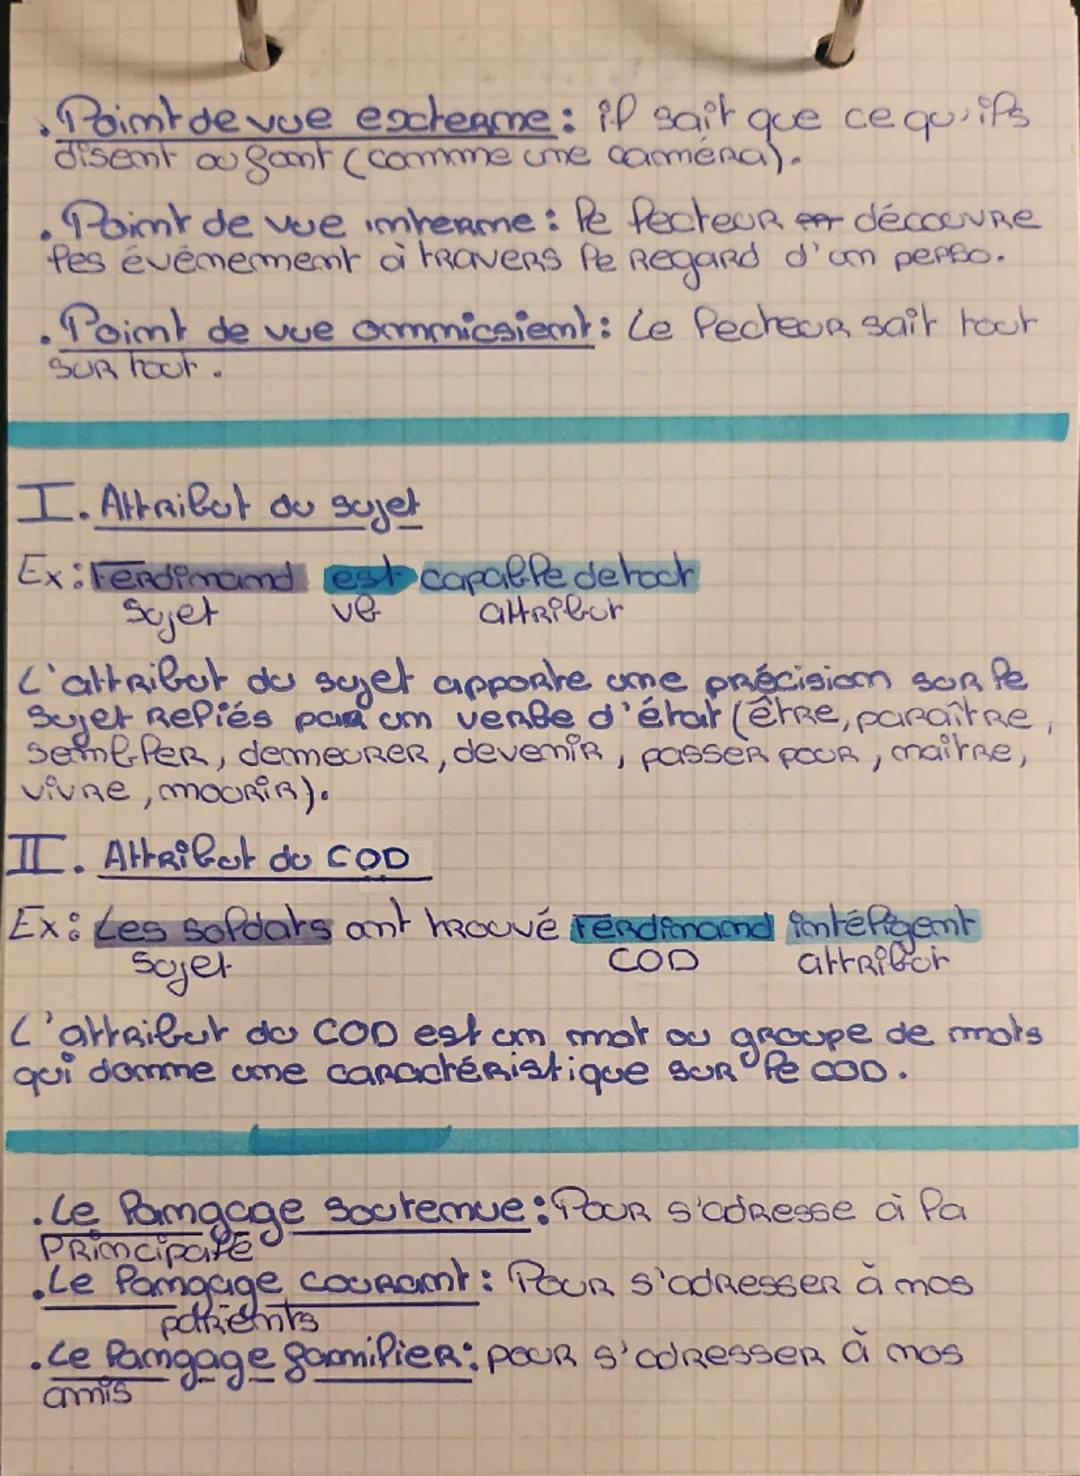 . Point de vue externe : il sait que ce qu'ils
disent ou font (comme une caméra).
. Point de vue interne : le lecteur découvre
les événement à travers le regard d'un perso.
. Point de vue omnicsient : Le lecteur sait tout
sur tout.
I. Attribut du sujet
Ex : Ferdinand est capable de tout
Sujet vb attribut
L'attribut du sujet apporte une précision sur le
sujet reliés par un verbe d'état (être, paraître,
sembler, demeurer, devenir, passer pour, naître,
vivre, mourir).
II. Attribut du COD
Ex : Les soldats ont trouvé Ferdinand intéligent
Sujet COD attribut
L'attribut du COD est un mot ou groupe de mots
qui donne une caractéristique sur le COD.
. Le langage soutenue : Pour s'adresse à la
Principale
. Le langage courant : Pour s'adresser à nos
parents
. Le langage familier : pour s'adresser à nos
amis